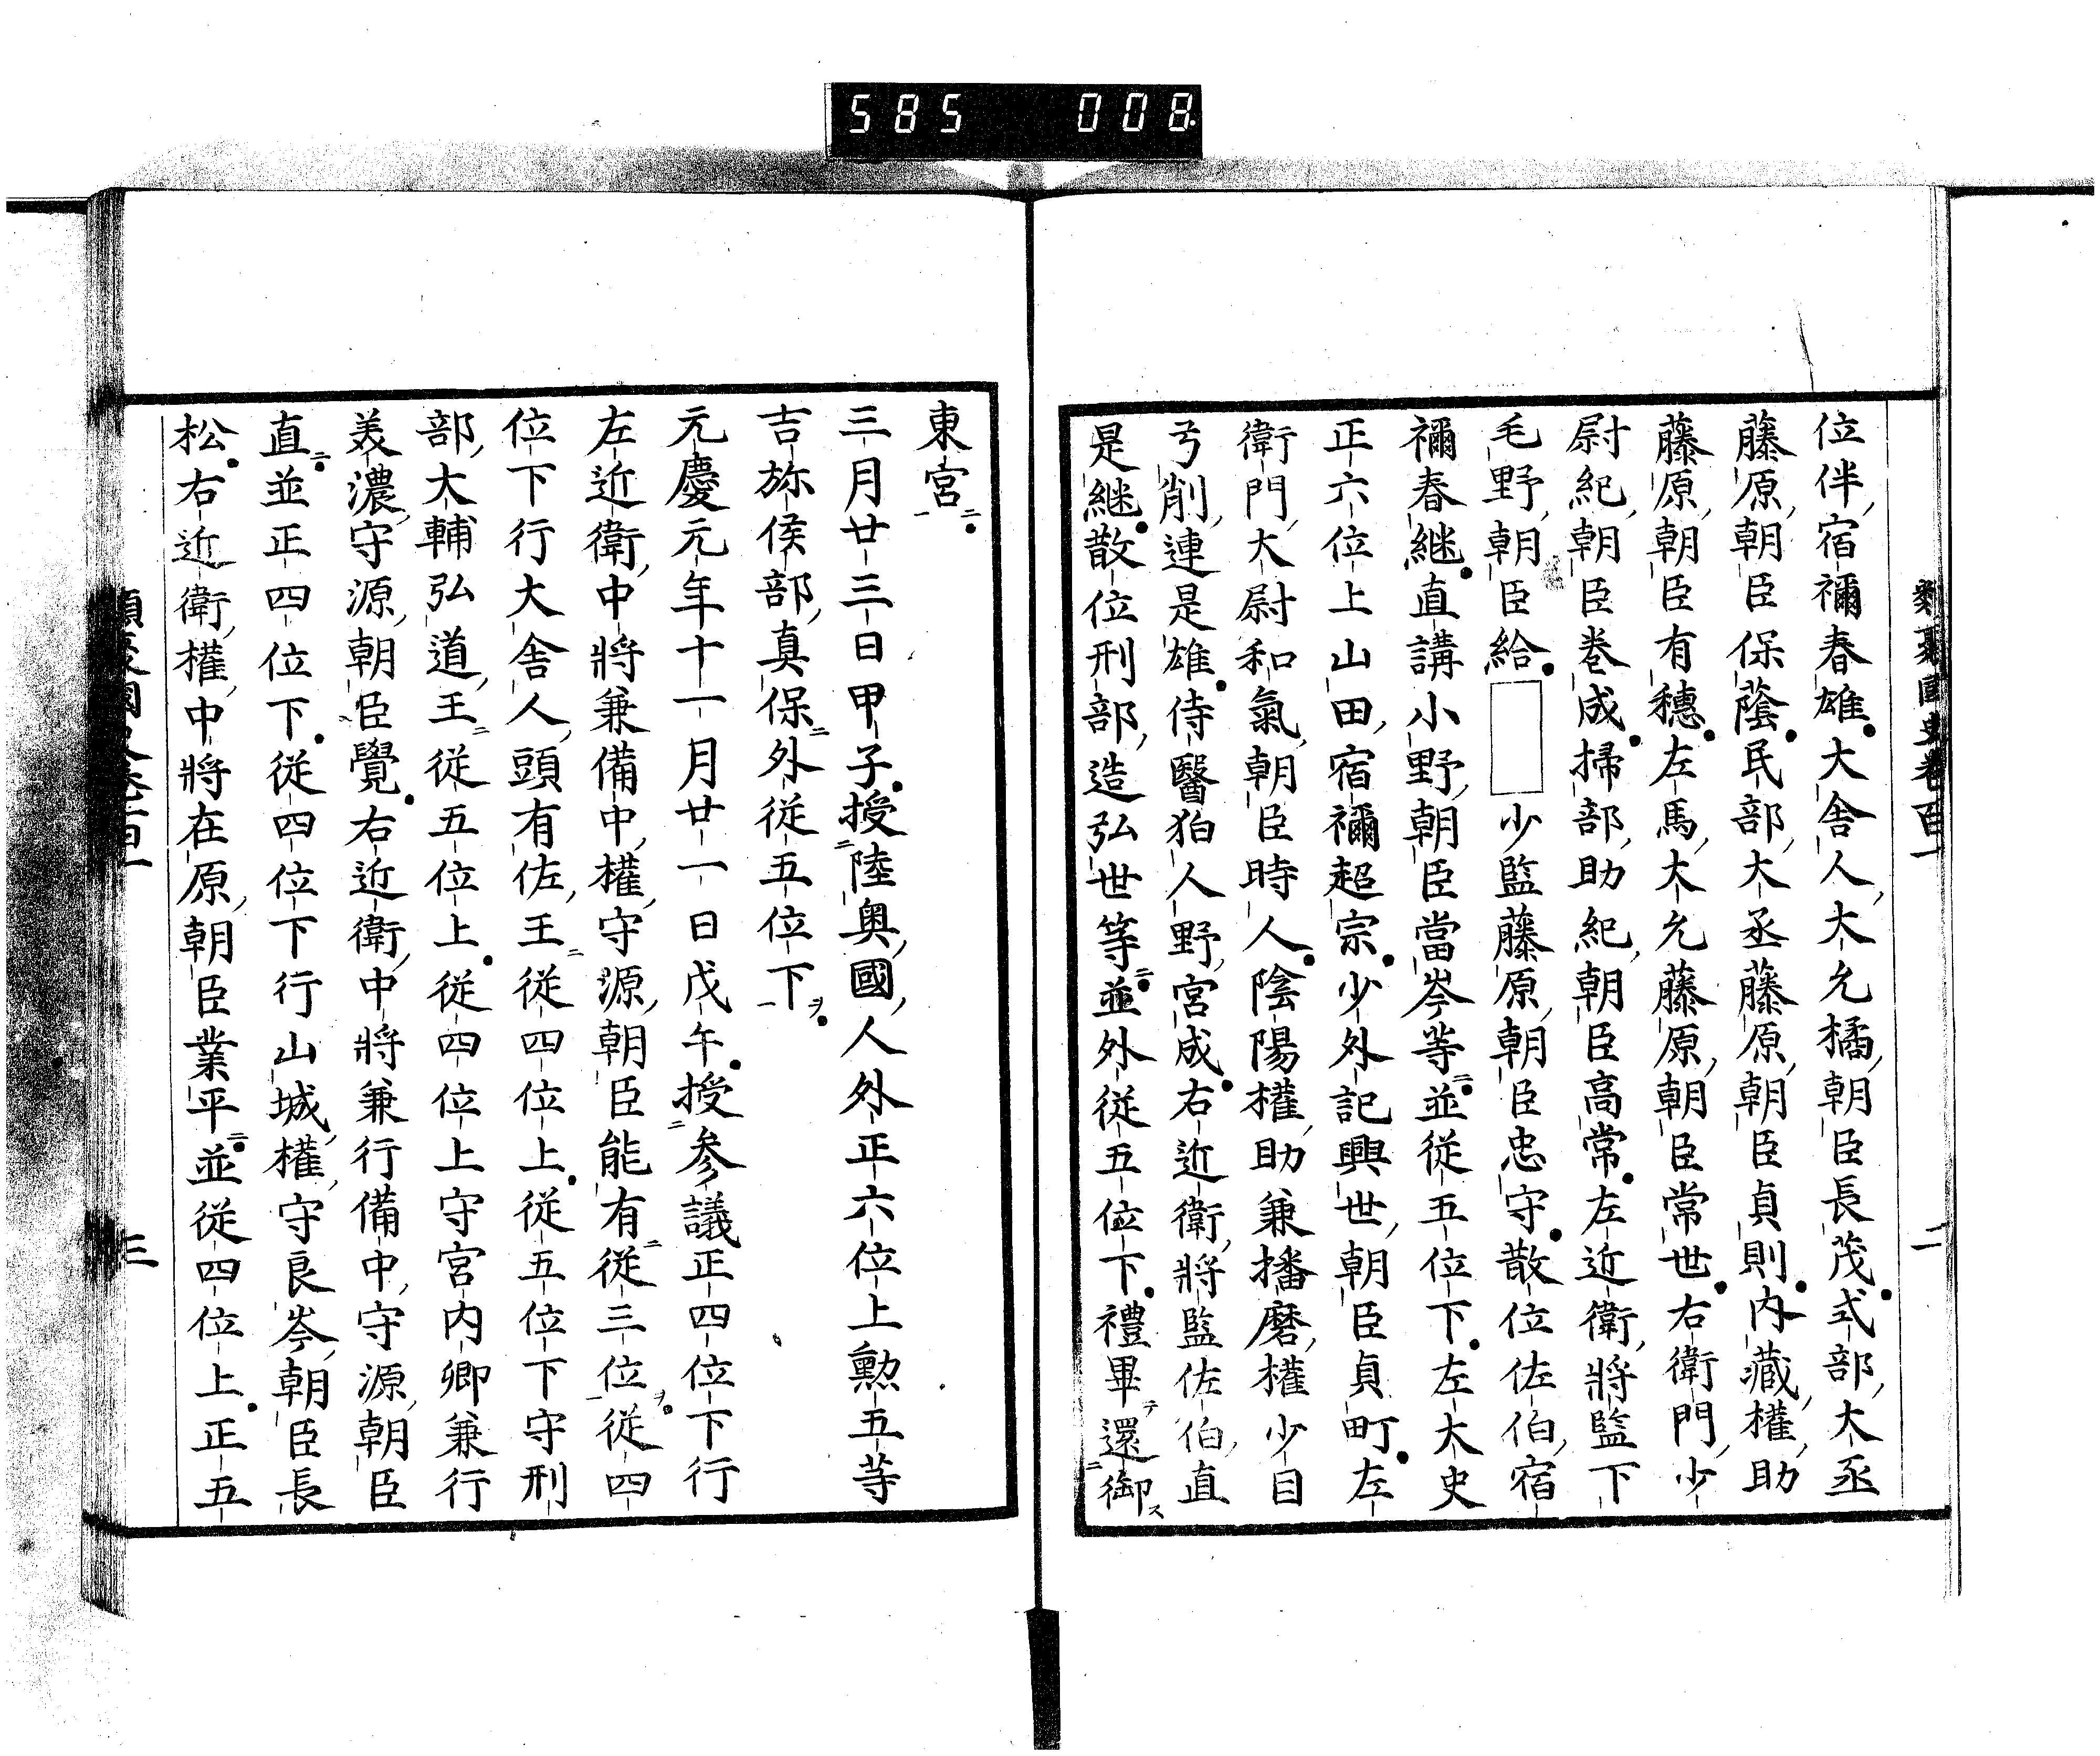 585 008
類聚國史卷百一 二
位伴宿禰春雄大舎人大允橘朝臣長茂式部大丞
藤原朝臣保蔭民部大丞藤原朝臣貞則内藏權助
藤原朝臣有穗左馬大允藤原朝臣常世右衛門少
尉紀朝臣卷成掃部助紀朝臣高常左近衛將監下
毛野朝臣給 少監藤原朝臣忠守散位佐伯宿
禰春継直講小野朝臣當岑等並従五位下左大史
正六位上山田宿禰超宗少外記興世朝臣貞町左
衛門大尉和氣朝臣時人陰陽權助兼播磨權少目
弓削連是雄侍醫狛人野宮成右近衛將監佐伯直
是継散位刑部造弘世等並外従五位下禮畢テ還御ス
東宮
三月廿三日甲子授陸奥國人外正六位上勲五等
吉弥侯部真保外従五位下ヲ
元慶元年十一月廿一日戊午授参議正四位下行
左近衛中將兼備中權守源朝臣能有従三位ヲ従四
位下行大舎人頭有佐王従四位上従五位下守刑
部大輔弘道王従五位上従四位上守宮内卿兼行
美濃守源朝臣覺右近衛中將兼行備中守源朝臣
直並正四位下従四位下行山城權守良岑朝臣長
松右近衛權中將在原朝臣業平並従四位上正五
類聚國史卷百一 三